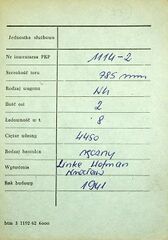 Jednostka służbowa
Nr inwentarza PKP 1114-2
Szerokość toru 785 mm
Rodzaj wagonu Wh
Ilość osi 2
Ładowność w t 8
Ciężar własny 4450
Rodzaj hamulca ręczny
Wytwórnia Linke Hofman
Wrocław
Rok budowy 1941